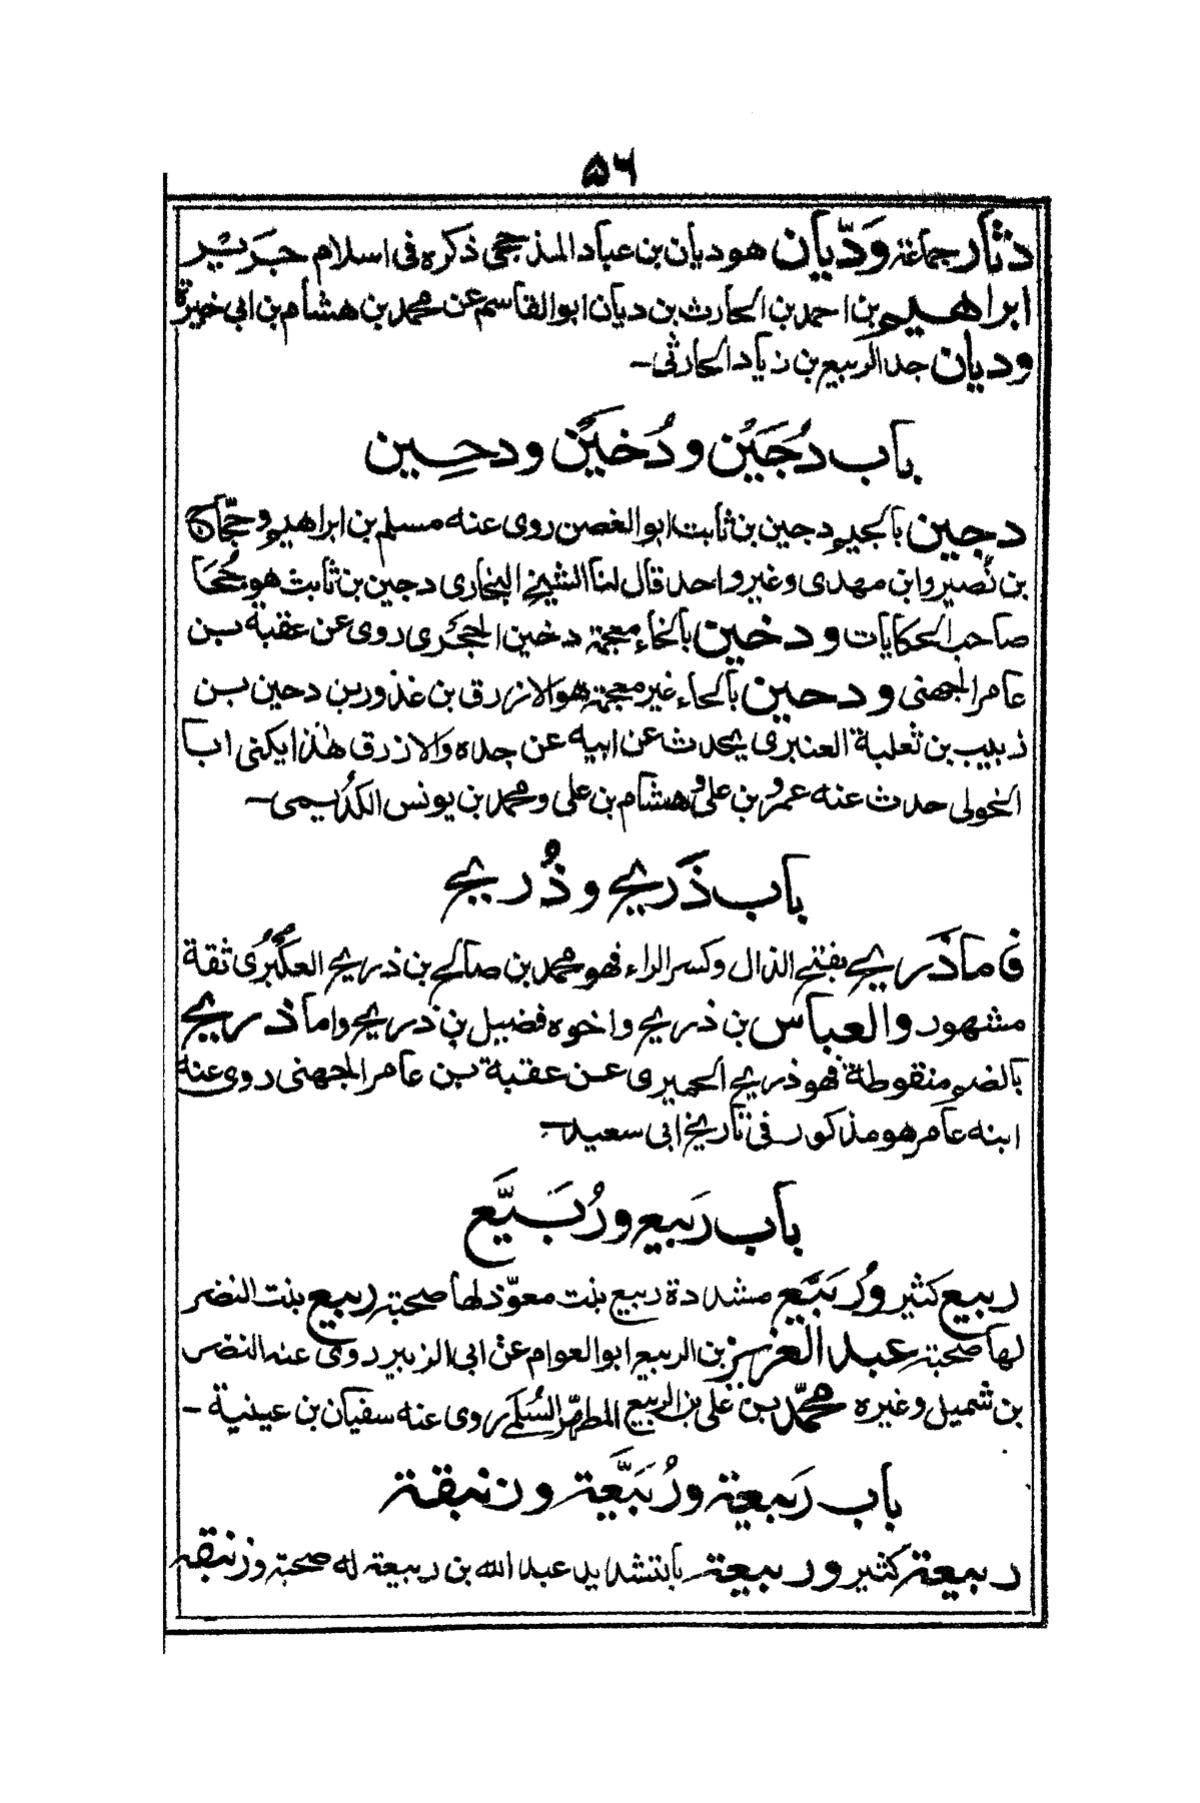 ۵۶
دثار جماعة وَدَّیان هو دیان بن عباد المذحجی ذکره فی اسلام جریر
ابراهیم بن احمد بن الحارث بن دیان ابو القاسم عن محمد بن هشام بن ابی خیرة
ودیان جد الربیع بن زیاد الحارثی۔
باب دُجَیْن و دُخَیْن و دحِین
دجین بالجیم دجین بن ثابت ابو الغصن روی عنه مسلم بن ابراهیم و حجّاج
بن نُصیر وابن مهدی و غیر واحد قال لنا الشیخ البخاری دجین بن ثابت هو جُحَا
صاحب الحکایات و دخین بالخاء معجمة دخین الحَجری روی عن عقبة بن
عامر الجهنی و دحین بالحاء غیر معجمة هو الازرق بن عذور بن دحین بن
زبیب بن ثعلبة العنبری یحدث عن ابیه عن جده والازرق هذا یکنی ابا
الخولی حدث عنه عمرو بن علی و هشام بن علی و محمد بن یونس الکُدَیمی۔
باب ذَریح و ذُریح
فاما ذَریح بفتح الذال و کسر الراء فهو محمد بن صالح بن ذریح العُکبُری ثقة
مشهور والعباس بن ذریح واخوه فضیل بن ذریح واما ذریح
بالضم منقوطة فهو ذریح الحمیری عن عقبة بن عامر الجهنی روی عنه
ابنه عامر هو مذکور فی تاریخ ابی سعید۔
باب رَبیع و رُبَیَّع
ربیع کثیر و رُبَیَّع مشددة ربیع بنت معوّذ لها صحبة ربیع بنت النضر
لها صحبة عبد العزیز بن الربیع ابو العوام عن ابی الزبیر روی عنه النضر
بن شمیل و غیره محمّد بن علی بن الربیع السُلَمی روی عنه سفیان بن عیینة ۔
باب رَبیعة و رُبَیَّعة و زنبقة
ربیعة کثیر و ربیعة بالتشدید عبد الله بن ربیعة له صحبة و زنبقة